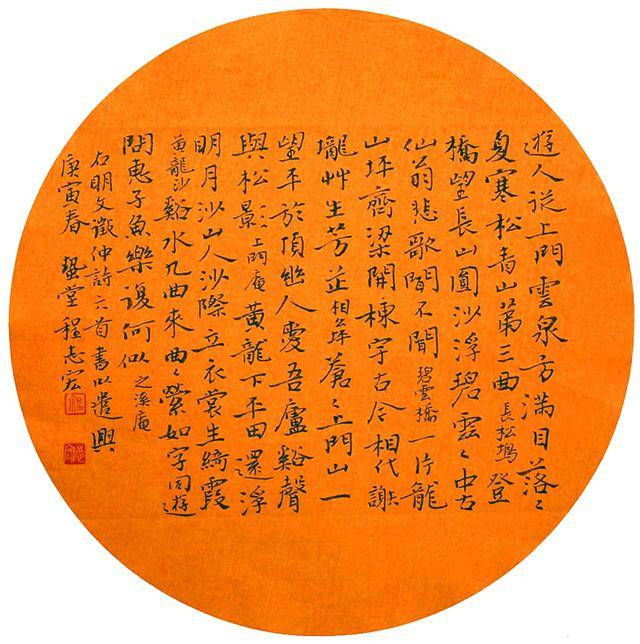 遊人從上門雲泉方滿目落〻
夏寒松青山第三曲長松塢登
橋望長山圓沙浮碧雲〻中古
仙翁悲歌閒不聞碧雲橋一片龍
山坪齊梁開棟宇古今相代謝
壠艸生芳芷相公坪蒼〻上門山一
望平於頂幽人愛吾廬谿聲
與松景〻上門庵黃龍下平田還浮
明月沙山人沙際立衣裳生綺霞
黃龍沙谿水几曲來曲〻縈如字同遊
問惠子魚樂復何似之溪庵
右明文徵仲詩六首書以遣興
庚寅春堂程志宏